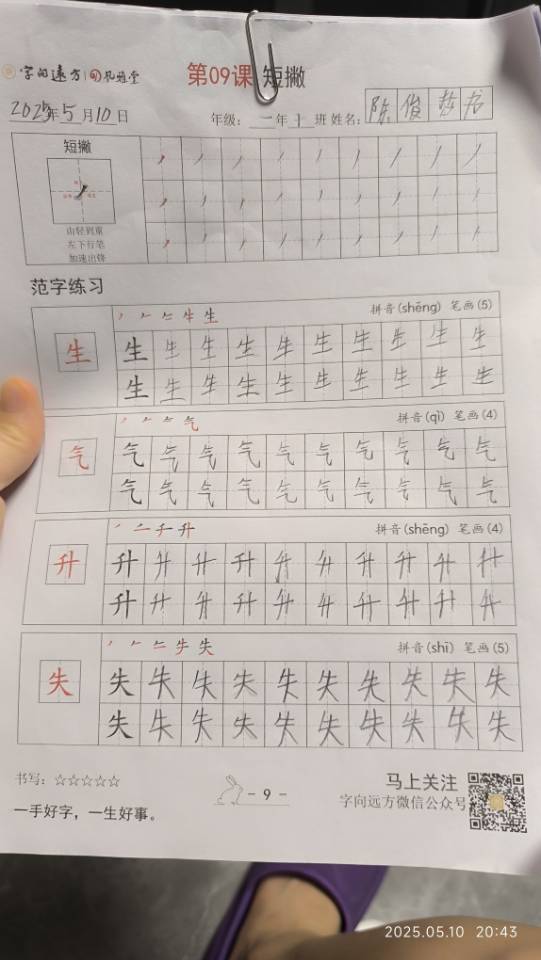 字向远方
第09课 短撇
2025年5月10日
年级：二年十班 姓名：陈俊
短撇
由轻到重
左下行笔
加速出锋
范字练习
拼音(shēng) 笔画(5)
生
生 生 生 生 生 生 生 生 生 生
生 生 生 生 生 生 生 生 生 生
拼音(qì) 笔画(4)
气
气 气 气 气 气 气 气 气 气 气
气 气 气 气 气 气 气 气 气 气
拼音(shēng) 笔画(4)
升
升 升 升 升 升 升 升 升 升 升
升 升 升 升 升 升 升 升 升 升
拼音(shī) 笔画(5)
失
失 失 失 失 失 失 失 失 失 失
失 失 失 失 失 失 失 失 失 失
书写：☆☆☆☆☆
- 9 -
马上关注
字向远方微信公众号
一手好字，一生好事。
2025.05.10 20:43